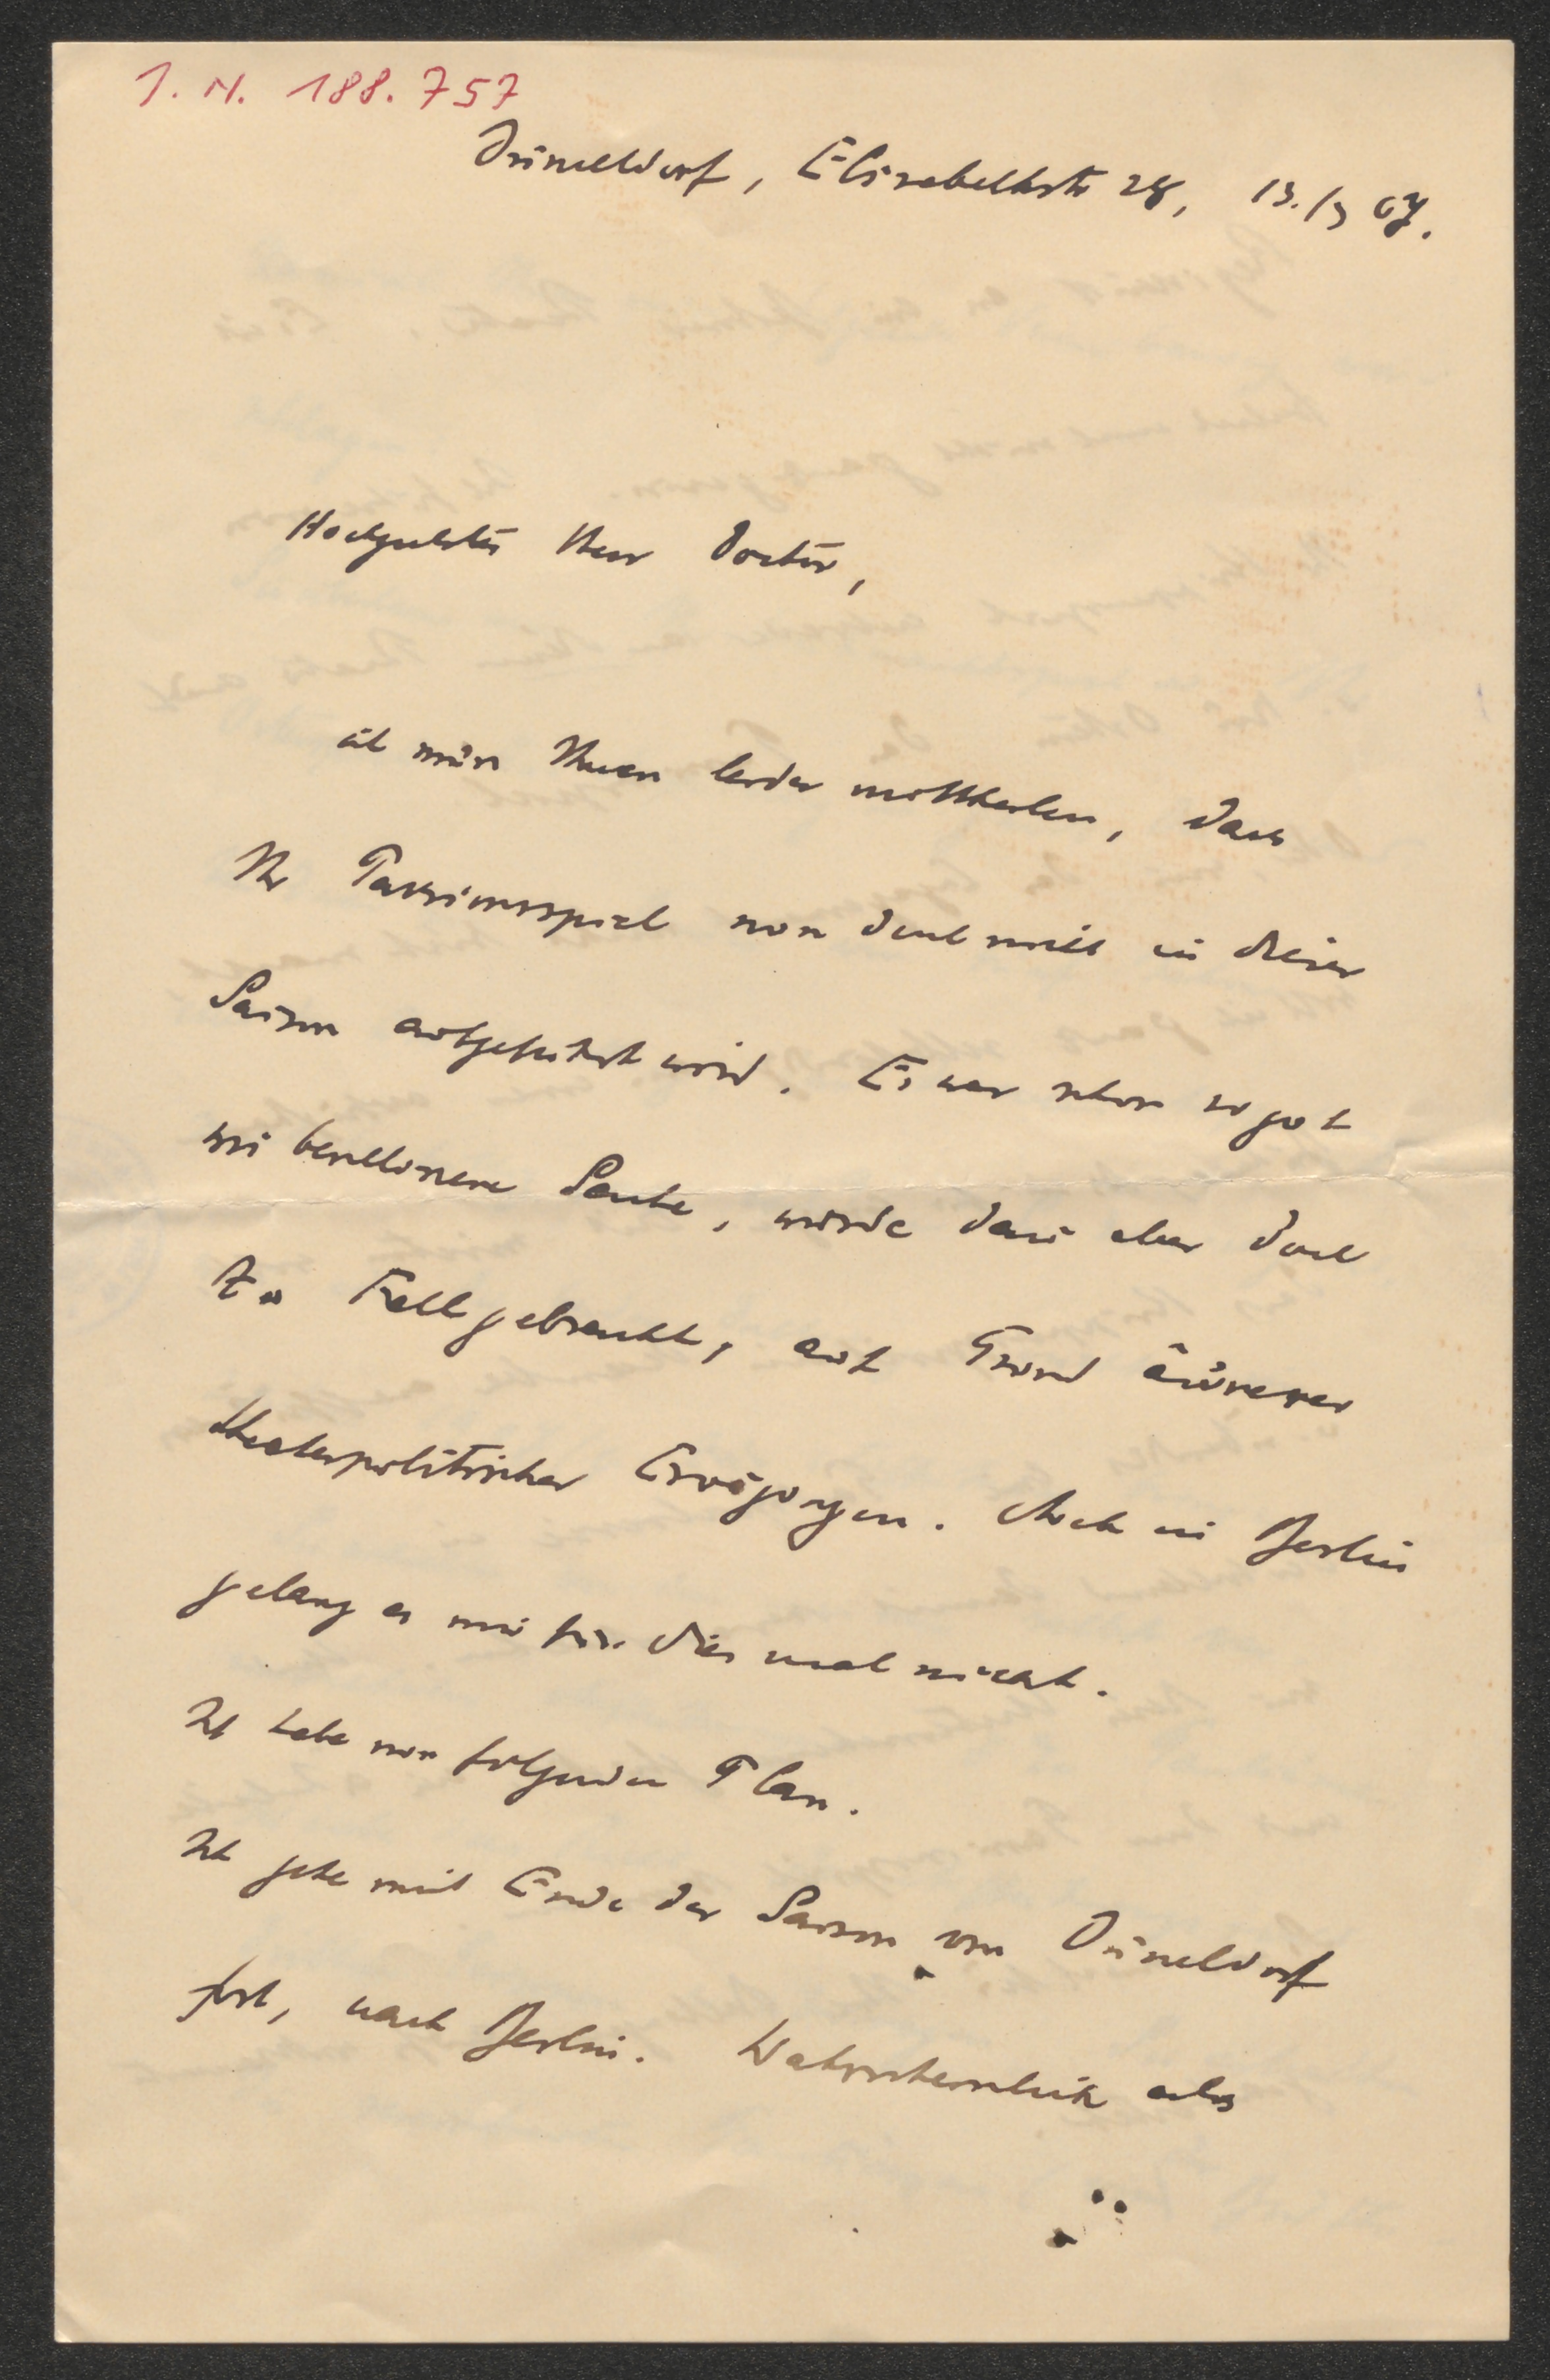 J. N. 188.757
Düsseldorf, Elisabethstr 28, 13./3 07.
Hochgeehrter Herr Doctor,
ich muss Ihnen leider mittheilen, dass
Ihr Passionsspiel nun doch nicht in dieser
Saison aufgeführt wird. Es war schon so gut
wie beschlossene Sache, wurde dann aber doch
zu Fall gebracht, auf Grund äusserer
theaterpolitischer Erwägungen. Auch in Berlin
gelang es mir für dies mal nicht.
Ich habe nun folgenden Plan.
Ich gehe mit Ende der Saison von Düsseldorf
fort, nach Berlin. Wahrscheinlich als